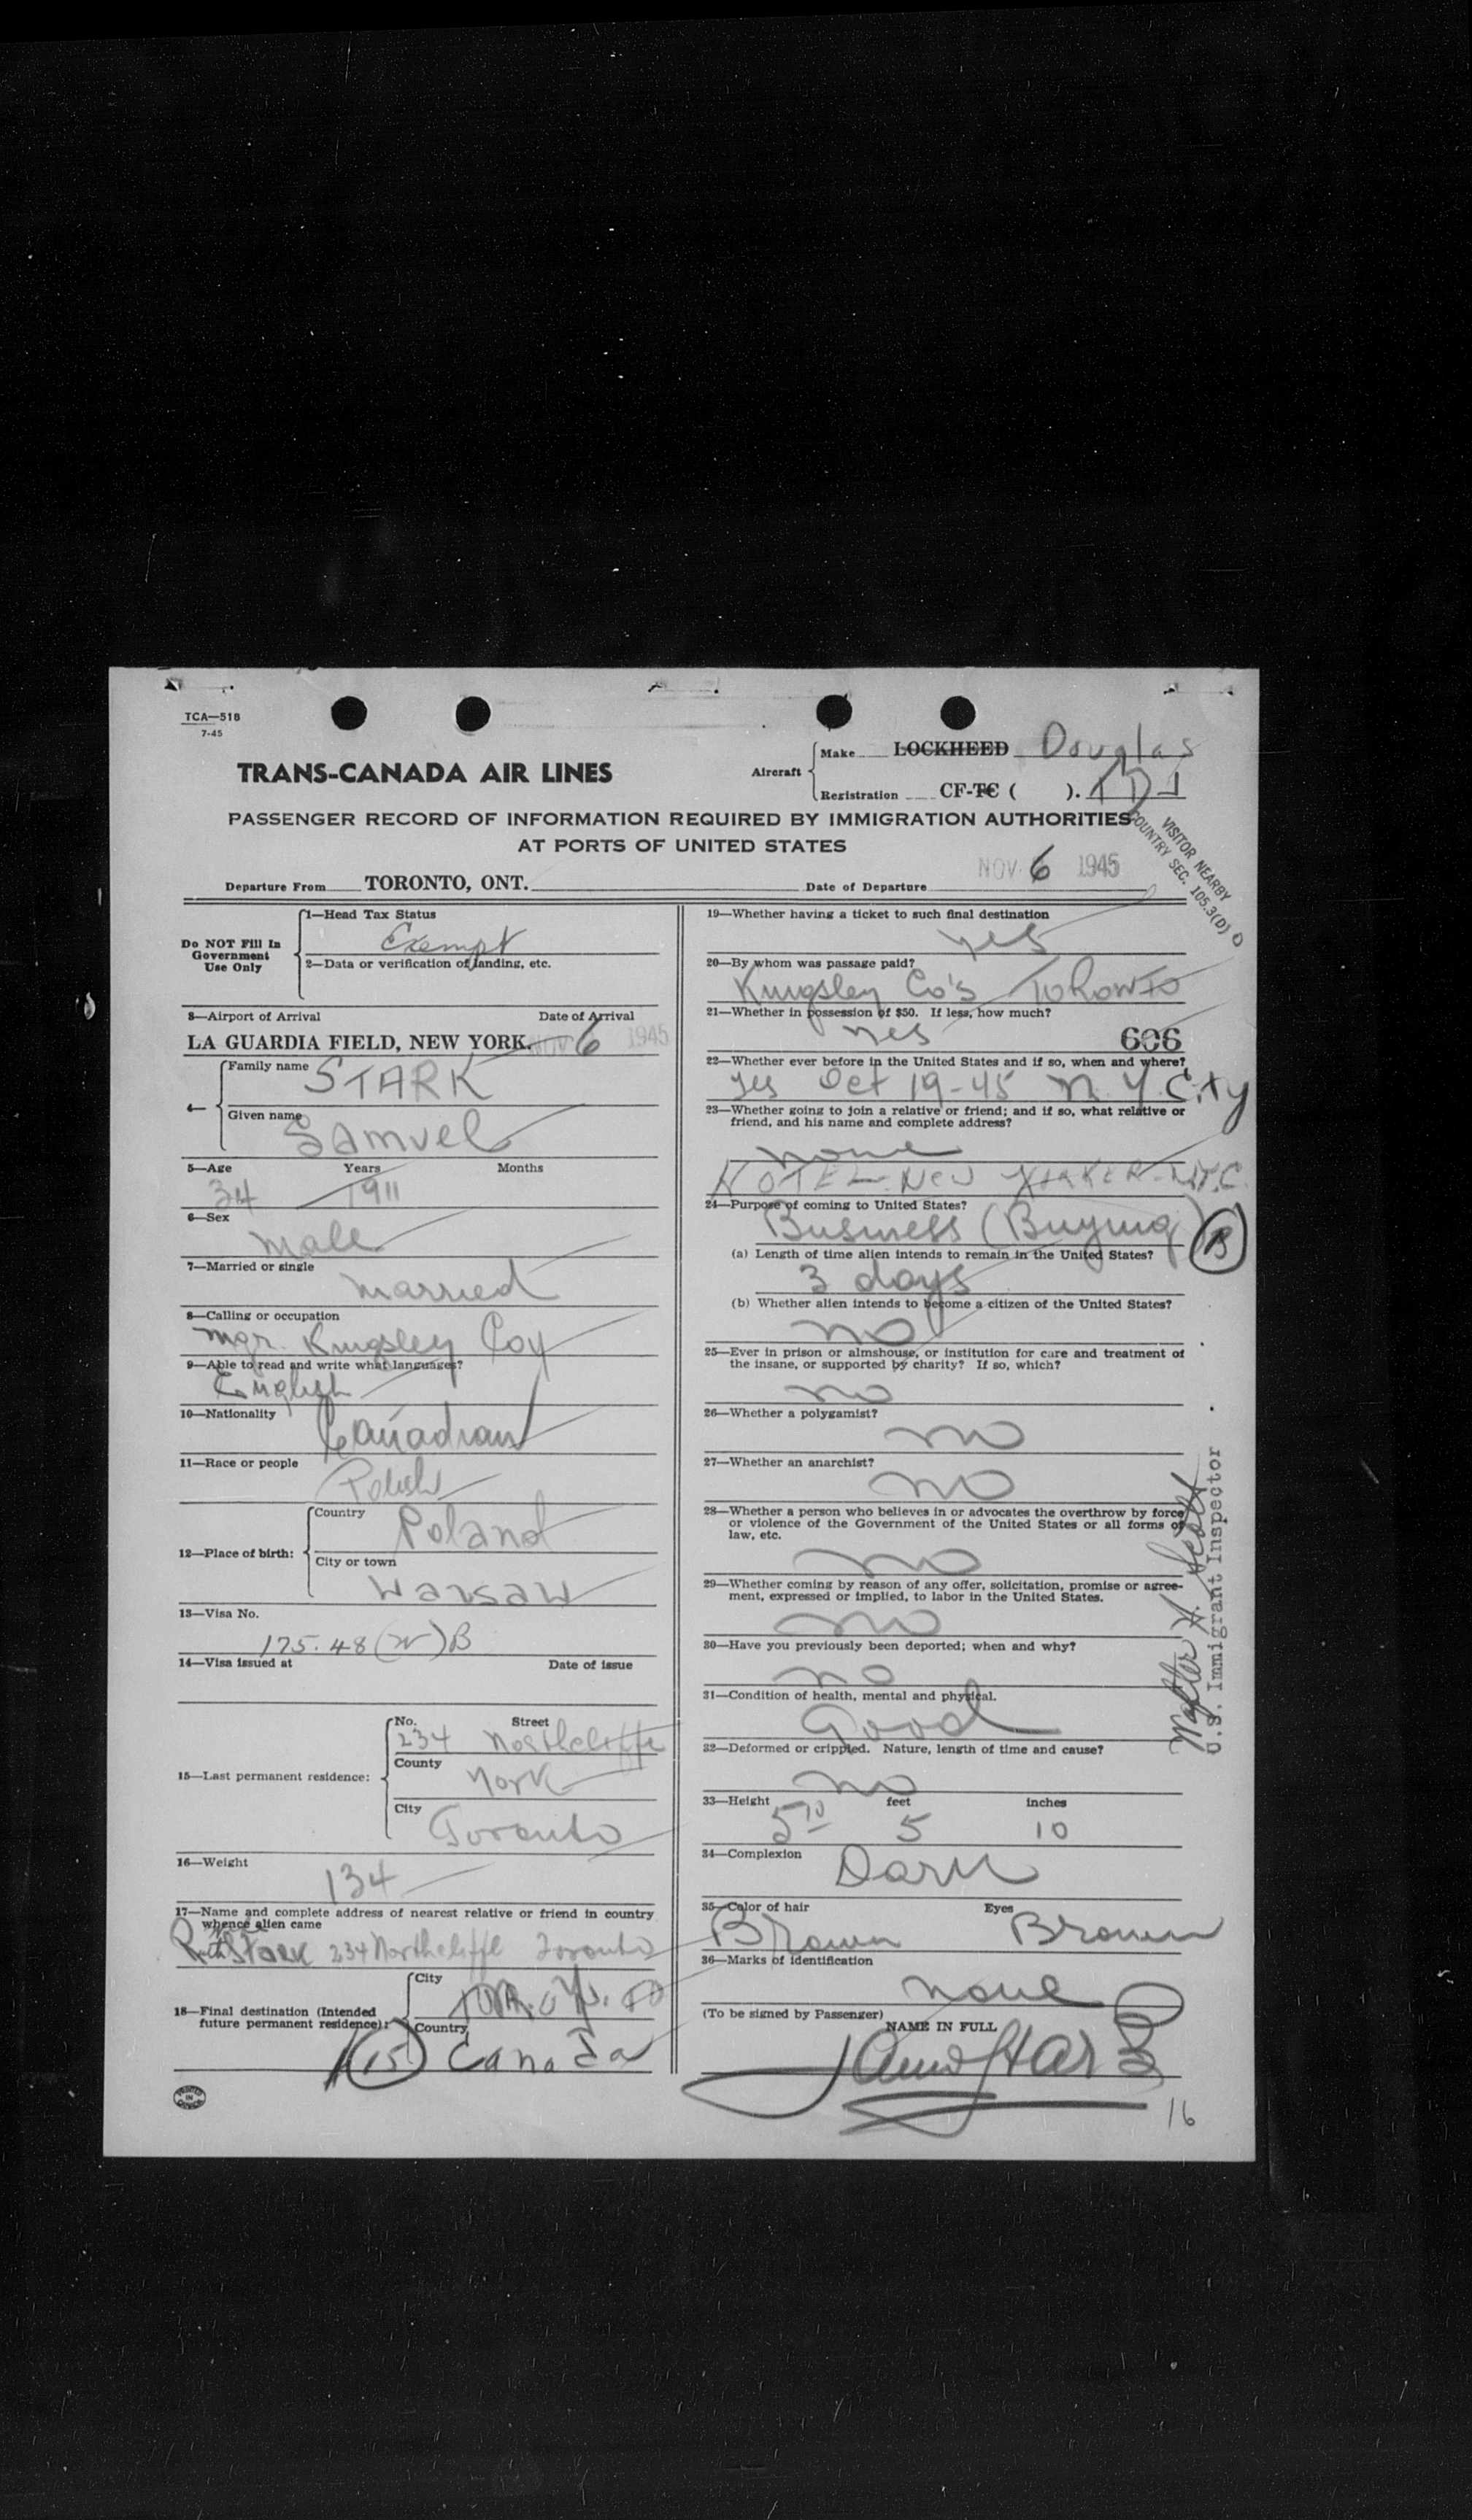 TCA—518
7-45
TRANS-CANADA AIR LINES
Aircraft
Make LOCKHEED Douglas
Registration CF-TC ( ).
PASSENGER RECORD OF INFORMATION REQUIRED BY IMMIGRATION AUTHORITIES
AT PORTS OF UNITED STATES
VISITOR NEARBY
COUNTRY SEC. 105.3(D)
Departure From TORONTO, ONT. Date of Departure NOV 6 1945
Do NOT Fill In
Government
Use Only
1—Head Tax Status
Exempt
2—Data or verification of landing, etc.
3—Airport of Arrival Date of Arrival
LA GUARDIA FIELD, NEW YORK. NOV 6 1945
4—
Family name STARK
Given name Samuel
5—Age Years Months
34 1911
6—Sex
male
7—Married or single
married
8—Calling or occupation
Mgr. Kingsley Coy
9—Able to read and write what languages?
English
10—Nationality Canadian
11—Race or people
Polish
12—Place of birth:
Country Poland
City or town
Warsaw
13—Visa No.
175.48 ( )B
14—Visa issued at Date of issue
15—Last permanent residence:
No. Street
234 Northcliffe
County
York
City
Toronto
16—Weight
134
17—Name and complete address of nearest relative or friend in country
whence alien came
Ruth Stark 234 Northcliffe Toronto
18—Final destination (Intended
future permanent residence):
City
Country
(15) Canada
19—Whether having a ticket to such final destination
yes
20—By whom was passage paid?
Kingsley Co's Toronto
21—Whether in possession of $50. If less, how much?
yes 606
22—Whether ever before in the United States and if so, when and where?
Yes Oct 19-45 N.Y. City
23—Whether going to join a relative or friend; and if so, what relative or
friend, and his name and complete address?
none
HOTEL New YORKER N.Y.C.
24—Purpose of coming to United States?
Business (Buying) B
(a) Length of time alien intends to remain in the United States?
3 days
(b) Whether alien intends to become a citizen of the United States?
no
25—Ever in prison or almshouse, or institution for care and treatment of
the insane, or supported by charity? If so, which?
no
26—Whether a polygamist?
no
27—Whether an anarchist?
no
28—Whether a person who believes in or advocates the overthrow by force
or violence of the Government of the United States or all forms of
law, etc.
no
29—Whether coming by reason of any offer, solicitation, promise or agree-
ment, expressed or implied, to labor in the United States.
no
30—Have you previously been deported; when and why?
no
31—Condition of health, mental and physical.
Good
32—Deformed or crippled. Nature, length of time and cause?
no
33—Height feet inches
5 10 5 10
34—Complexion Dark
35—Color of hair Eyes
Brown Brown
36—Marks of identification
none
(To be signed by Passenger)
NAME IN FULL
16
Walter H.
U.S. Immigrant Inspector